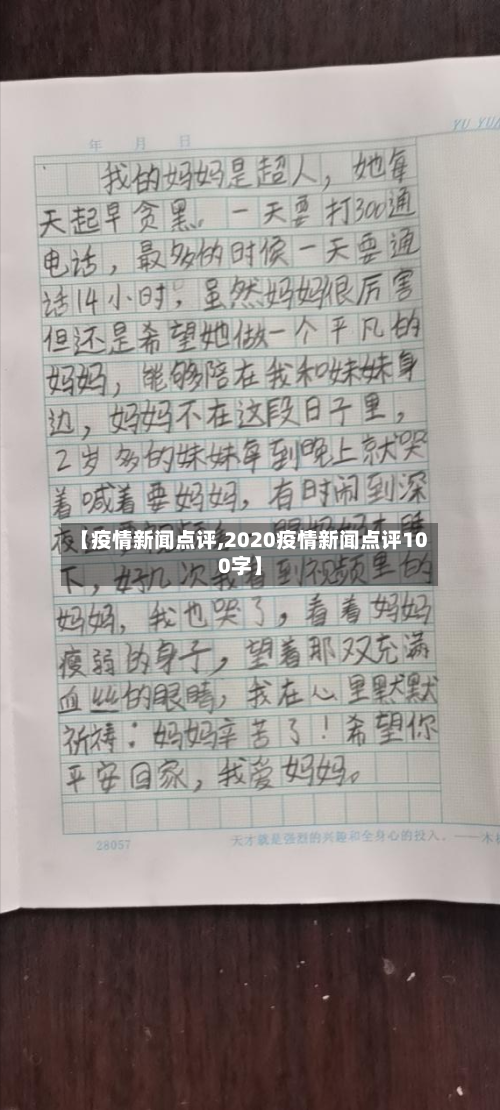 YU YU
年 月 日
我的妈妈是超人，她每
天起早贪黑。一天要打300通
电话，最多的时候一天要通
话14小时，虽然妈妈很厉害
但还是希望她做一个平凡的
妈妈，能够陪在我和妹妹身
边，妈妈不在这段日子里，
2岁多的妹妹每到晚上就哭
着喊着要妈妈，有时闹到深
夜
【疫情新闻点评,2020疫情新闻点评10
0字】
下，好几次我看到视频里的
妈妈，我也哭了，看着妈妈
瘦弱的身子，望着那双充满
血丝的眼睛，我在心里默默
祈祷：妈妈辛苦了！希望你
平安回家，我爱妈妈。
28057 天才就是强烈的兴趣和全身心的投入。——木